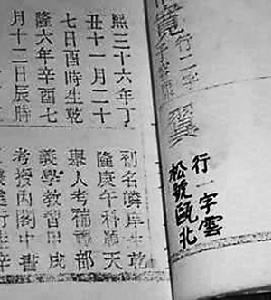 寬
行二字
翼
行一字雲
松號甌北
熙三十六年丁
丑十一月二十
七日酉時生乾
隆六年辛酉七
月十二日辰時
名 岸生乾
隆庚午科順天
舉人考補 部
義學教習甲戌
考授內閣中書
行走辛